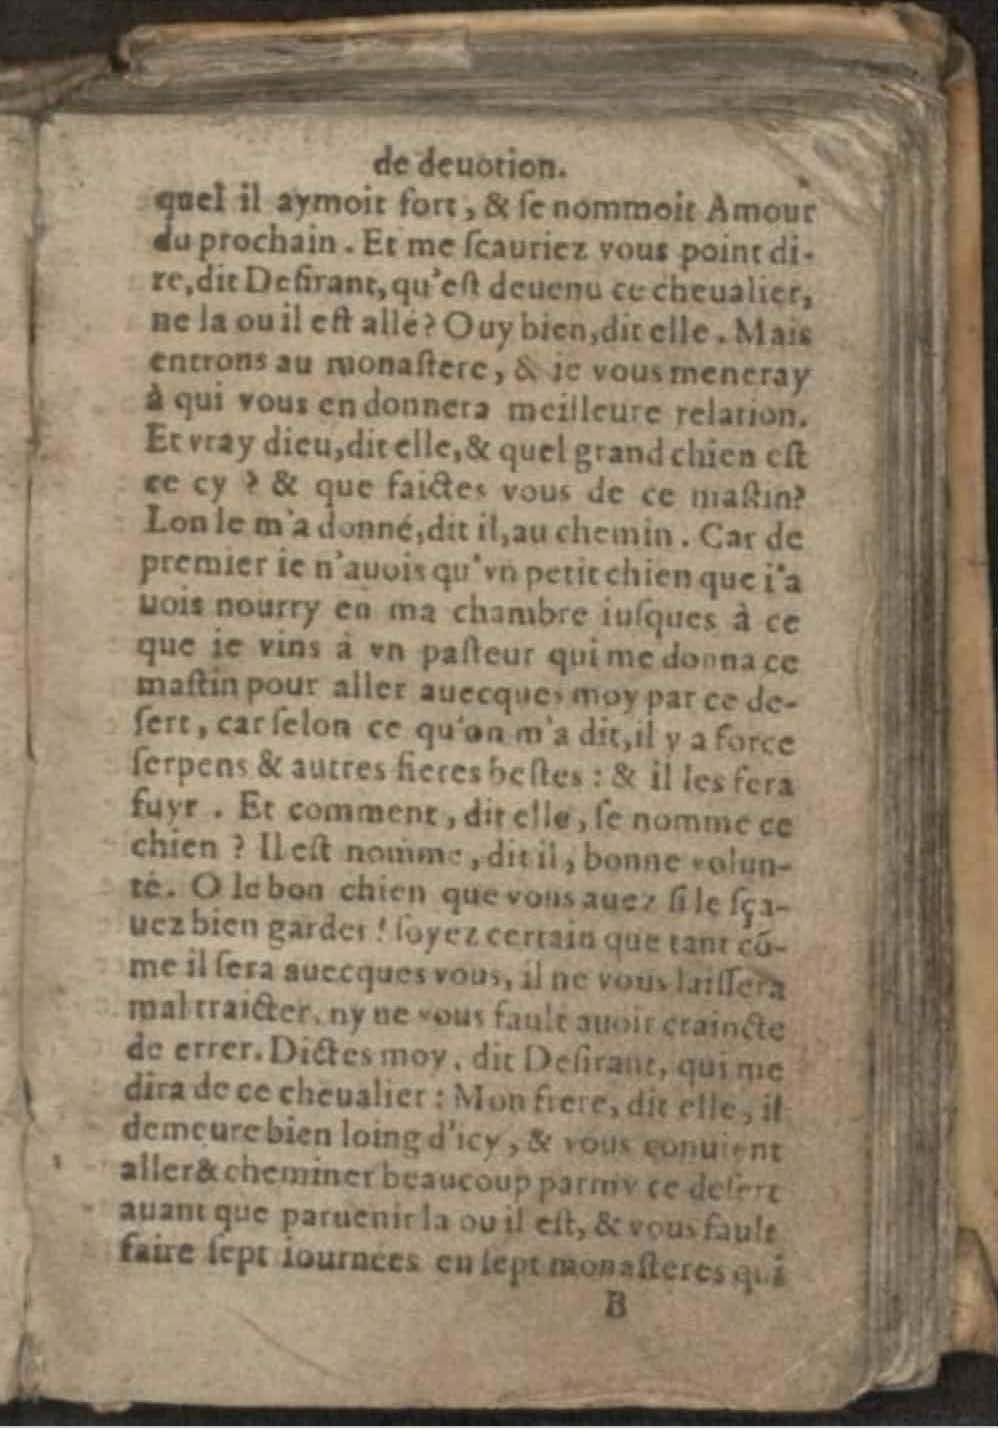 de deuotion.
quel il aymoit fort, & ſe nommoit Amour
du prochain. Et me ſcauriez vous point di-
re, dit Deſirant, qu'eſt deuenu ce cheualier,
ne la ou il eſt allé? Ouy bien, dit elle. Mais
entrons au monaſtere, & ie vous meneray
à qui vous en donnera meilleure relation.
Et vray dieu, dit elle, & quel grand chien eſt
ce cy ? & que faictes vous de ce maſtin?
Lon le m'a donné, dit il, au chemin. Car de
premier ie n'auois qu'vn petit chien que i'a
uois nourry en ma chambre iuſques à ce
que ie vins à vn paſteur qui me donna ce
maſtin pour aller auecques moy par ce de-
ſert, car ſelon ce qu'on m'a dit, il y a force
ſerpens & autres fieres beſtes : & il les fera
fuyr. Et comment, dit elle, ſe nomme ce
chien ? Il eſt nomme, dit il, bonne volun-
té. O le bon chien que vous auez ſi le ſça-
uez bien garder ! ſoyez certain que tant cõ-
me il ſera auecques vous, il ne vous laiſſera
mal traicter, ny ne vous fault auoir craincte
de errer. Dictes moy, dit Deſirant, qui me
dira de ce cheualier : Mon frere, dit elle, il
demeure bien loing d'icy, & vous conuient
aller & cheminer beaucoup parmy ce deſert
auant que paruenir la ou il eſt, & vous fault
faire ſept iournees en ſept monaſteres qui
B